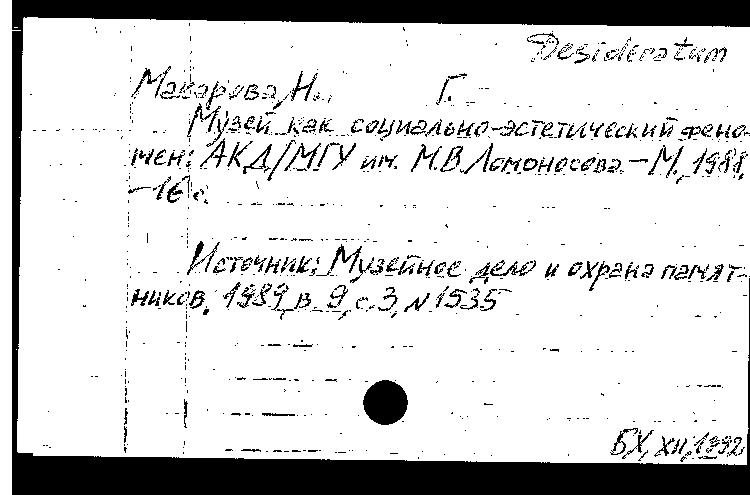 Desideratum
Макарова, Н. Г.
Музей как социально-эстетический фено-
мен: АКД/МГУ им. М.В.Ломоносова. – М., 1988.
– 16 с.
Источник: Музейное дело и охрана памят-
ников. 1989, в. 9, с. 3, N 1535
БХ, XII, 1992